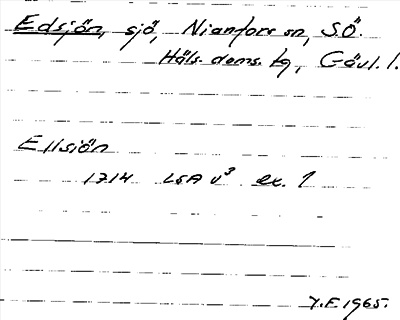 Edsjön, sjö, Nianfors sn, S.Ö.
Häls. doms. tg, Gävl. l.
Ellsjön
1714 LSA v³ ex. 1
Y.F. 1965.